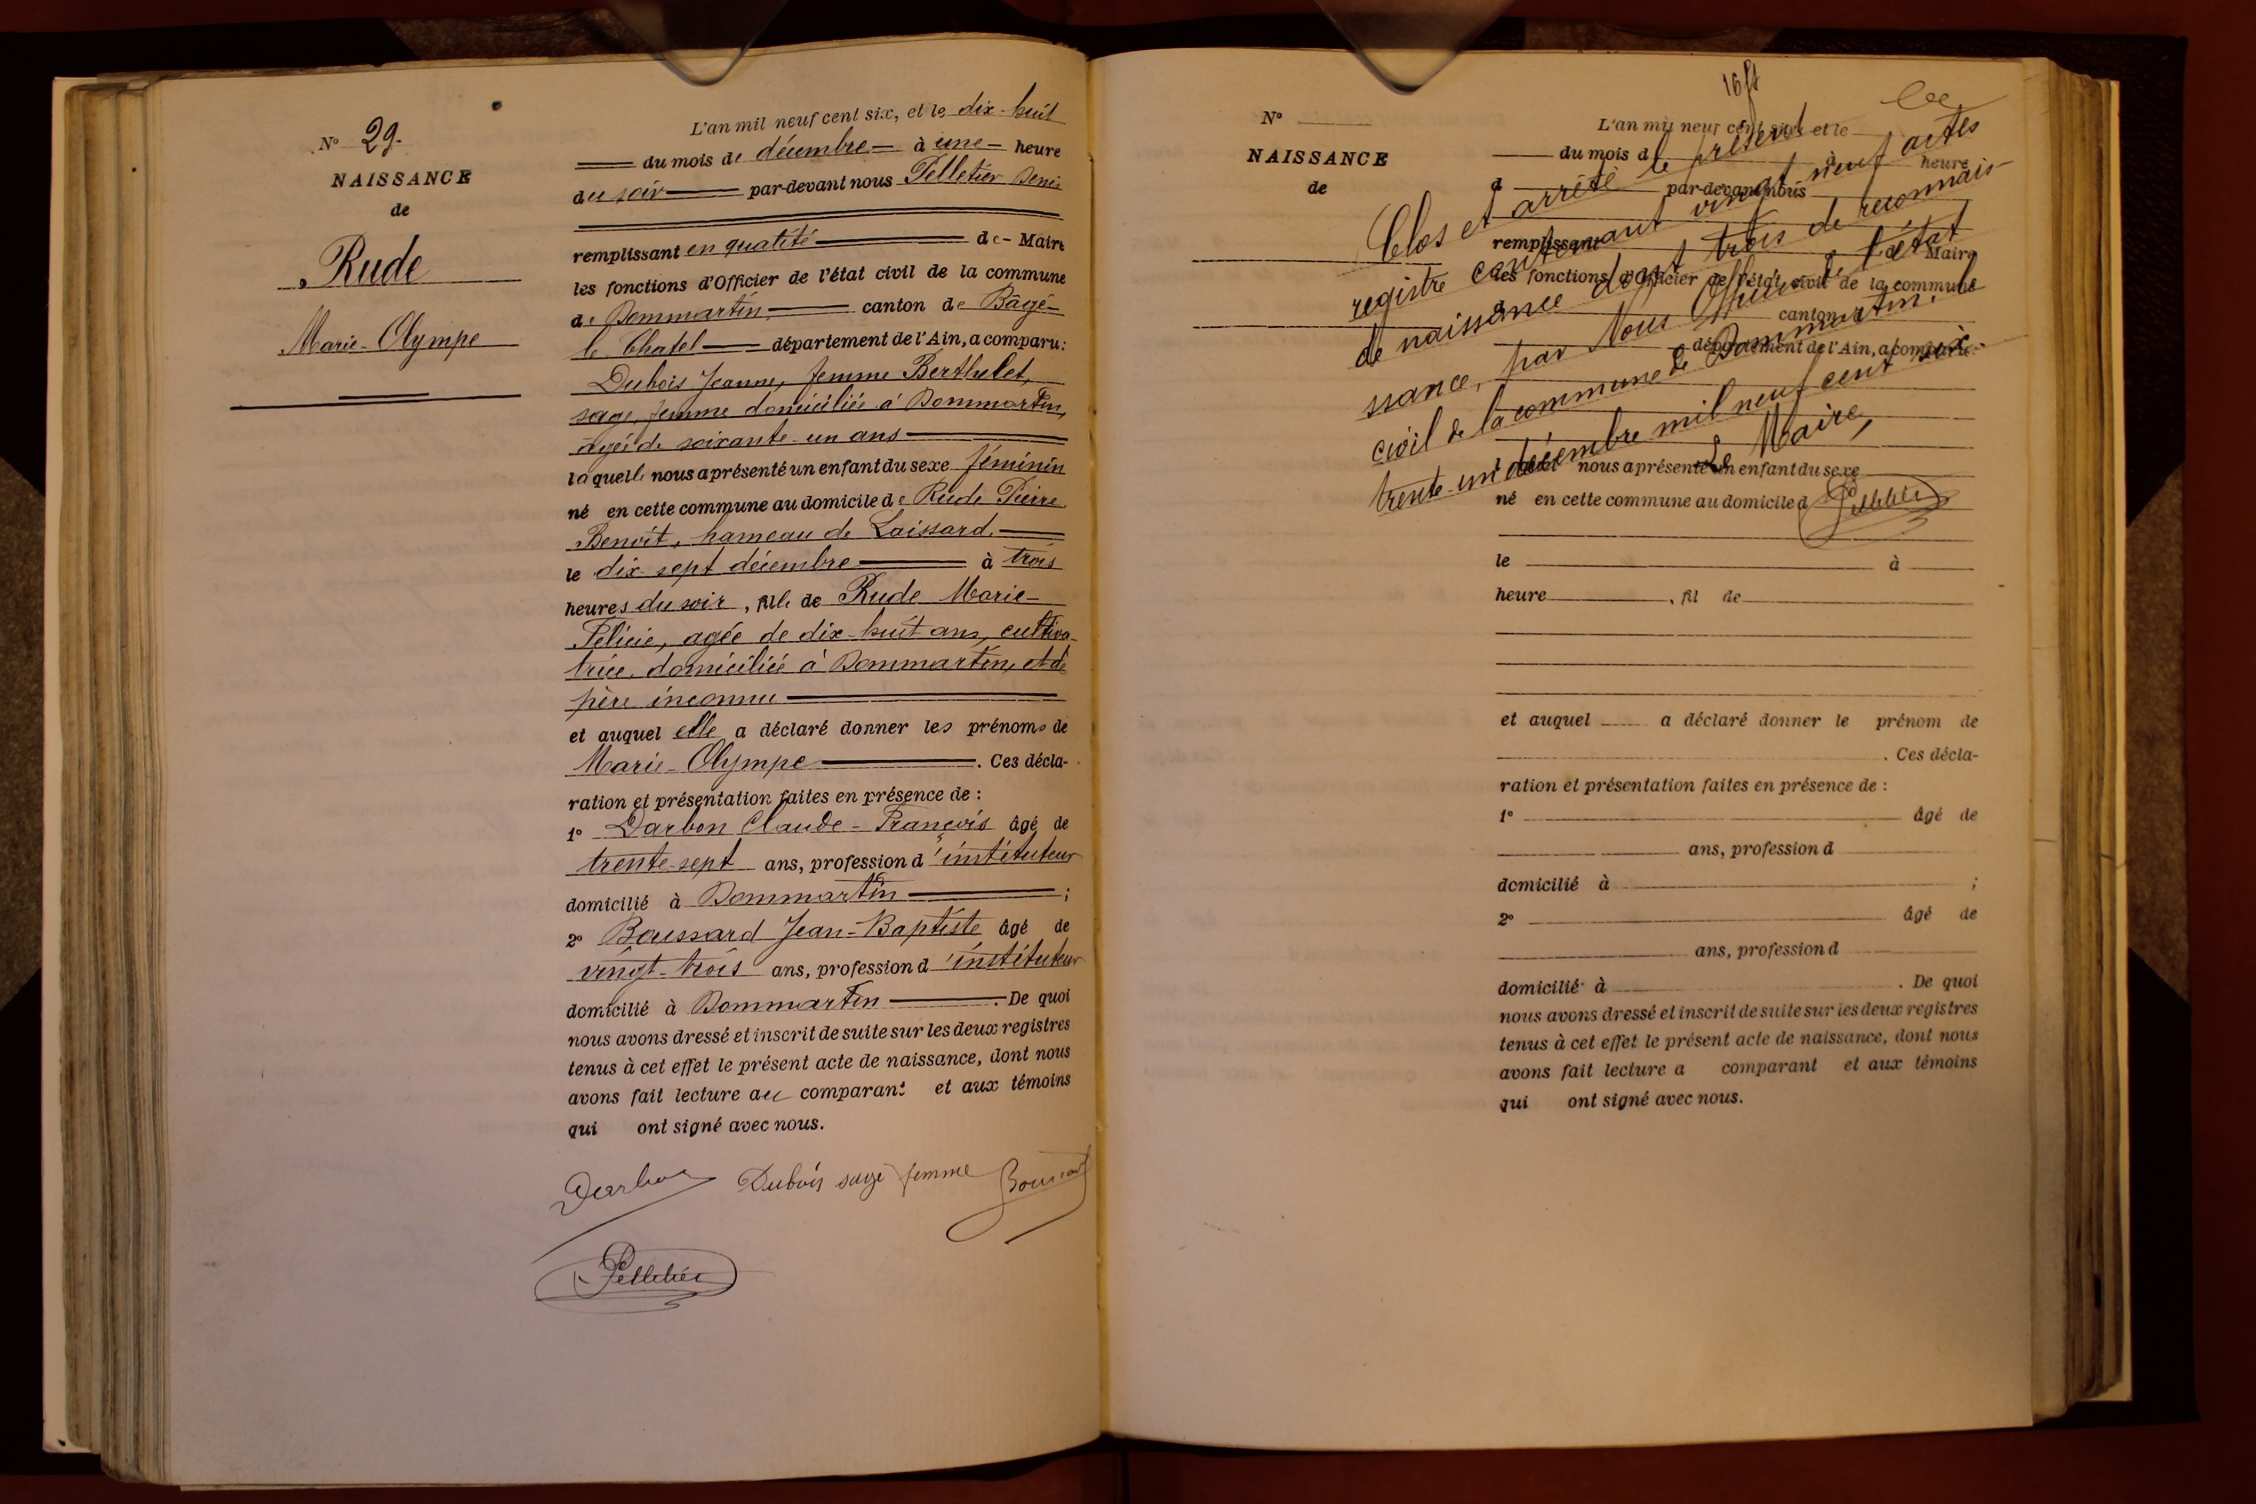 N° 29.
NAISSANCE
de
Rude
Marie-Olympe
L'an mil neuf cent six, et le dix-huit
du mois de décembre à une heure
du soir par-devant nous Pelletier Denis
remplissant en qualité de Maire
les fonctions d'Officier de l'état civil de la commune
de Dommartin canton de Bâgé-
le Chatel département de l'Ain, a comparu:
Dubois Jeanne, femme Berthelet,
sage femme domiciliée à Dommartin,
agée de soixante-un ans
laquelle nous a présenté un enfant du sexe féminin
né en cette commune au domicile de Rude Pierre
Benoît, hameau de Laissard.
le dix-sept décembre à trois
heures du soir, fille de Rude Marie-
Félicie, agée de dix-huit ans, cultiva-
trice, domiciliée à Dommartin, et de
père inconnu
et auquel elle a déclaré donner les prénoms de
Marie-Olympe. Ces décla-
ration et présentation faites en présence de :
1° Darbon Claude-François âgé de
trente-sept ans, profession d'instituteur
domicilié à Dommartin ;
2° Boussard Jean-Baptiste âgé de
vingt-trois ans, profession d'instituteur
domicilié à Dommartin. De quoi
nous avons dressé et inscrit de suite sur les deux registres
tenus à cet effet le présent acte de naissance, dont nous
avons fait lecture au comparant et aux témoins
qui ont signé avec nous.
Darbon Dubois sage femme Boussard
Pelletier
16
N°
NAISSANCE
de
L'an mil neuf cent six, et le
du mois d à heure
d par-devant nous
remplissant d Maire
les fonctions d'Officier de l'état civil de la commune
d canton d
département de l'Ain, a comparu:
l quel nous a présenté un enfant du sexe
né en cette commune au domicile d
Clos et arrêté le présent
registre contenant vingt neuf actes
de naissance dont trois de reconnais-
ssance, par Nous Officier de l'état
civil de la commune de Dommartin, le
trente-un décembre mil neuf cent six.
Le Maire,
Pelletier
le à
heure , fil de
et auquel a déclaré donner le prénom de
. Ces décla-
ration et présentation faites en présence de :
1° âgé de
ans, profession d
domicilié à ;
2° âgé de
ans, profession d
domicilié à . De quoi
nous avons dressé et inscrit de suite sur les deux registres
tenus à cet effet le présent acte de naissance, dont nous
avons fait lecture a comparant et aux témoins
qui ont signé avec nous.